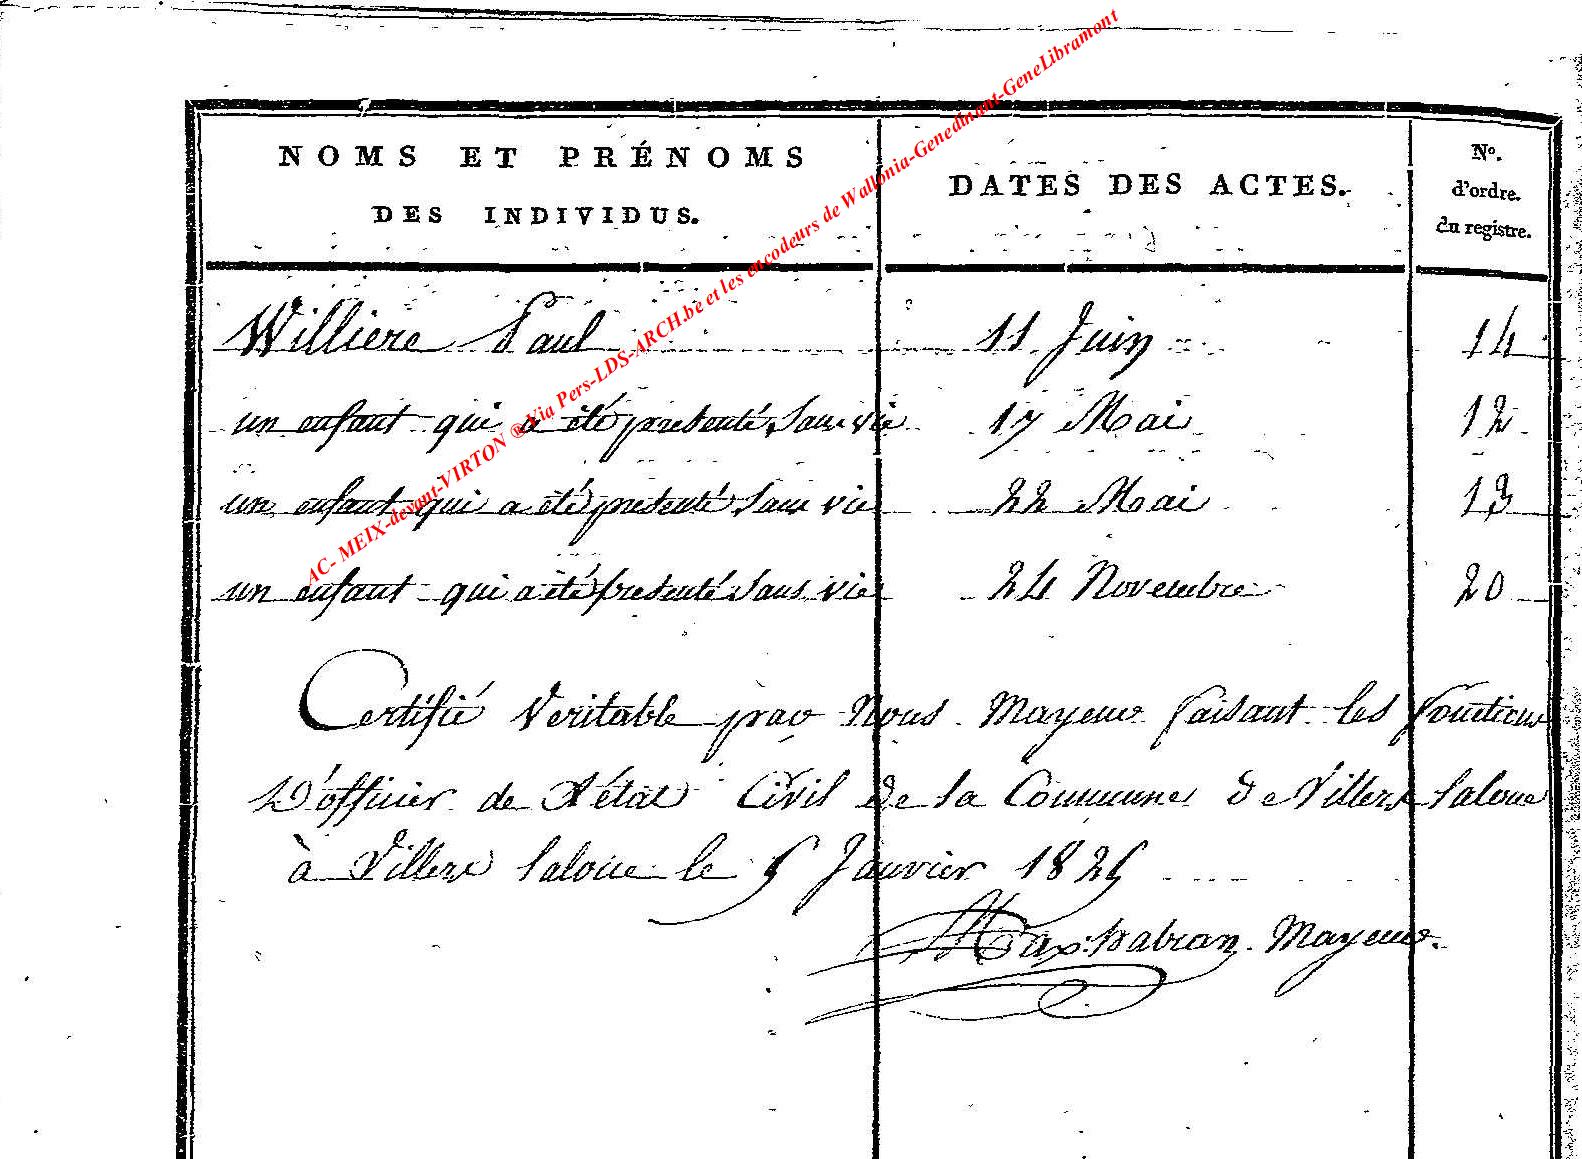 NOMS ET PRÉNOMS
DES INDIVIDUS.
DATES DES ACTES.
No.
d'ordre.
du registre.
Williere Paul 11 Juin 14
un enfant qui a été presenté sans vie 17 Mai 12
un enfant qui a été presenté sans vie 22 Mai 13
un enfant qui a été presenté sans vie 24 Novembre 20
Certifié Veritable par Nous Mayeur faisant les fonctions
D'officier de L'état Civil de la Commune de Villers laloue
à Villers laloue le 5 Janvier 1825
Mayeur.
AC- MEIX-devant-VIRTON ® Via Pers-LDS-ARCH.be et les encodeurs de Wallonia-Genedinant-GeneLibramont